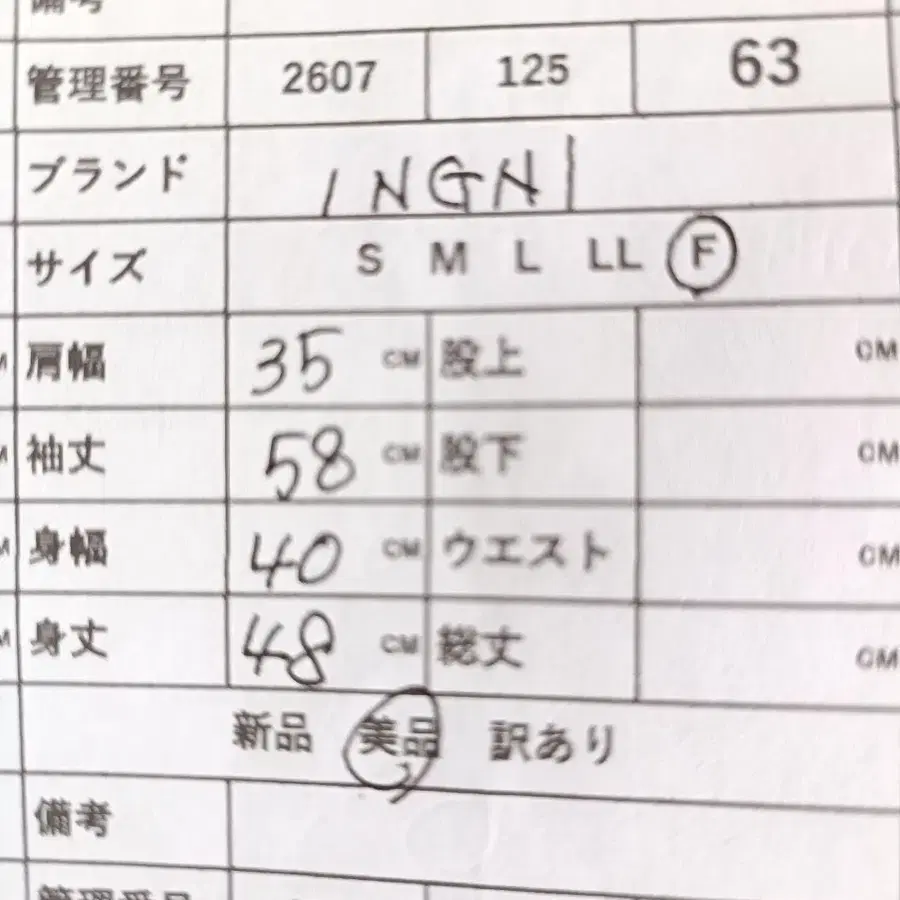 備考
管理番号 2607 125 63
ブランド INGNI
サイズ S M L LL F
肩幅 35 CM 股上 CM
袖丈 58 CM 股下 CM
身幅 40 CM ウエスト CM
身丈 48 CM 総丈 CM
新品 美品 訳あり
備考
管理番号